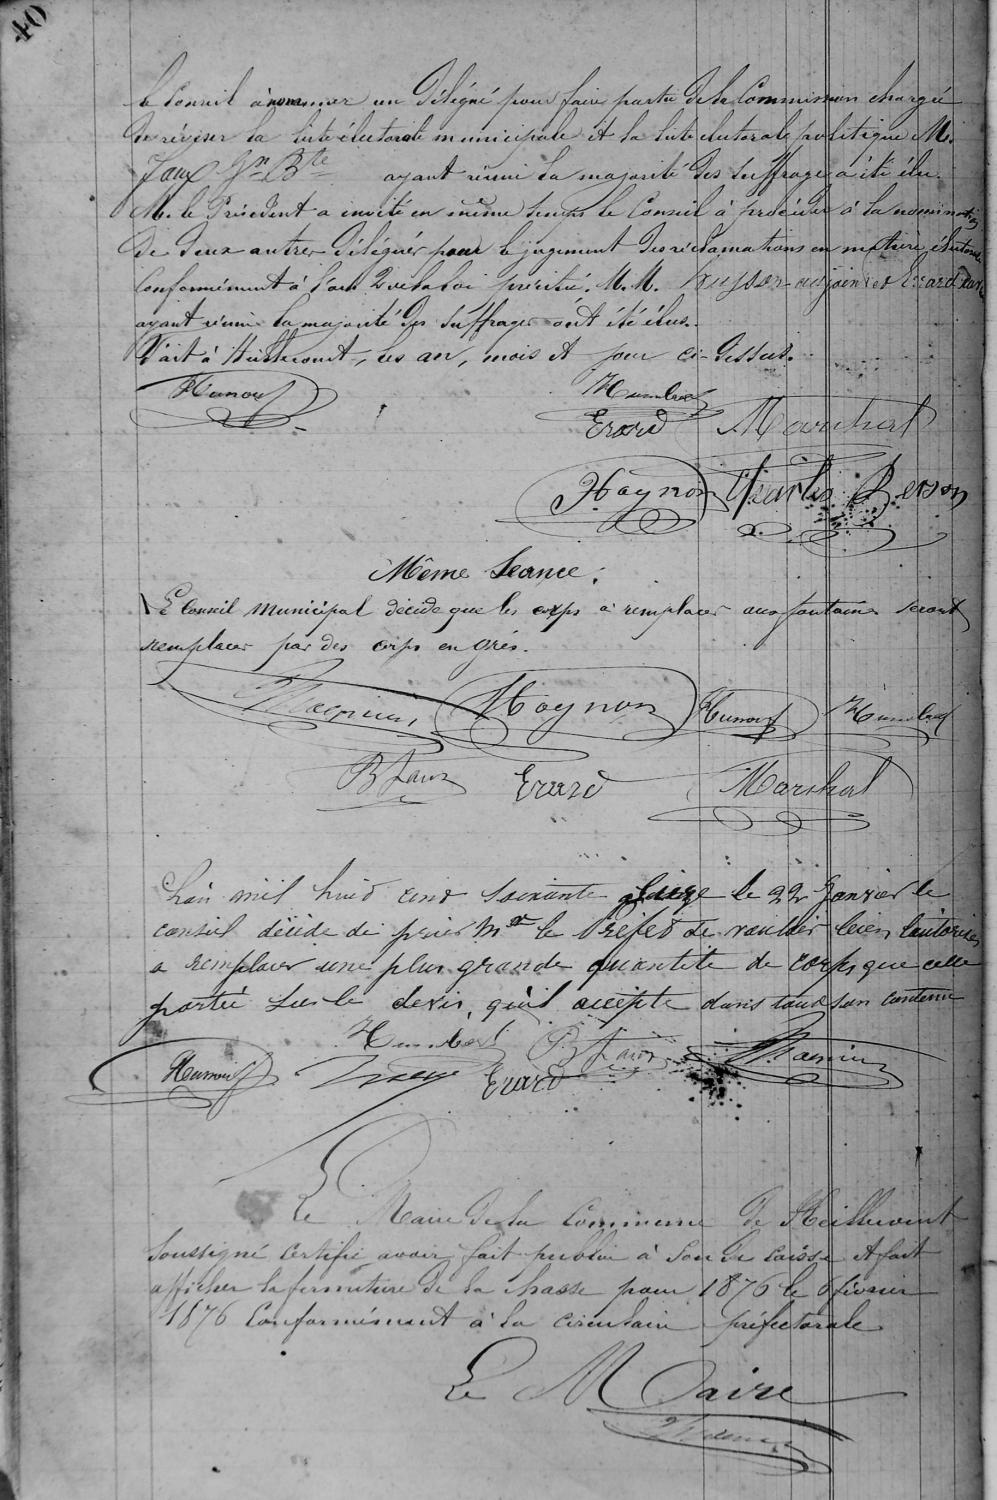 40
le Conseil à nommer un Délégué pour faire partie de la Commission chargée
de réviser la liste électorale municipale et la liste électorale politique M.
Jaux Jn Bte ayant réuni la majorité des suffrages a été élu.
M. le Président a invité en même temps le Conseil à procéder à la nomination
de deux autres Délégués pour le jugement des réclamations en matière électorale
Conformément à l'art 2 de la loi précitée. M.M. Husson adjoint et Erard
ayant réuni la majorité des suffrages ont été élus.
Fait à, les an, mois et jour ci-dessus.
Humbert
Erard Marchal
Haynon Charles Berson
Même Séance.
Le Conseil Municipal décide que les corps à remplacer aux fontaines seront
remplacer par des corps en grès.
Haynon Humbert
B Jaux Erard Marchal
L'an mil huit cent soixante seize le 22 Janvier le
conseil décide de prier Mr le Préfet de vouloir bien l'autoriser
a remplacer une plus grande quantité de corps que celle
portée sur le devis, qu'il accepte dans tout son contenu
Humbert B Jaux
Erard
Le Maire de la Commune de
Soussigné certifie avoir fait publier à son de caisse et fait
afficher la fermeture de la chasse pour 1876 le 6 février
1876 Conformément à la circulaire préfectorale
Le Maire